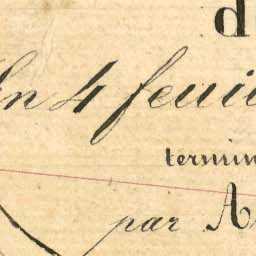 d
En 4 feuil
termin
par A